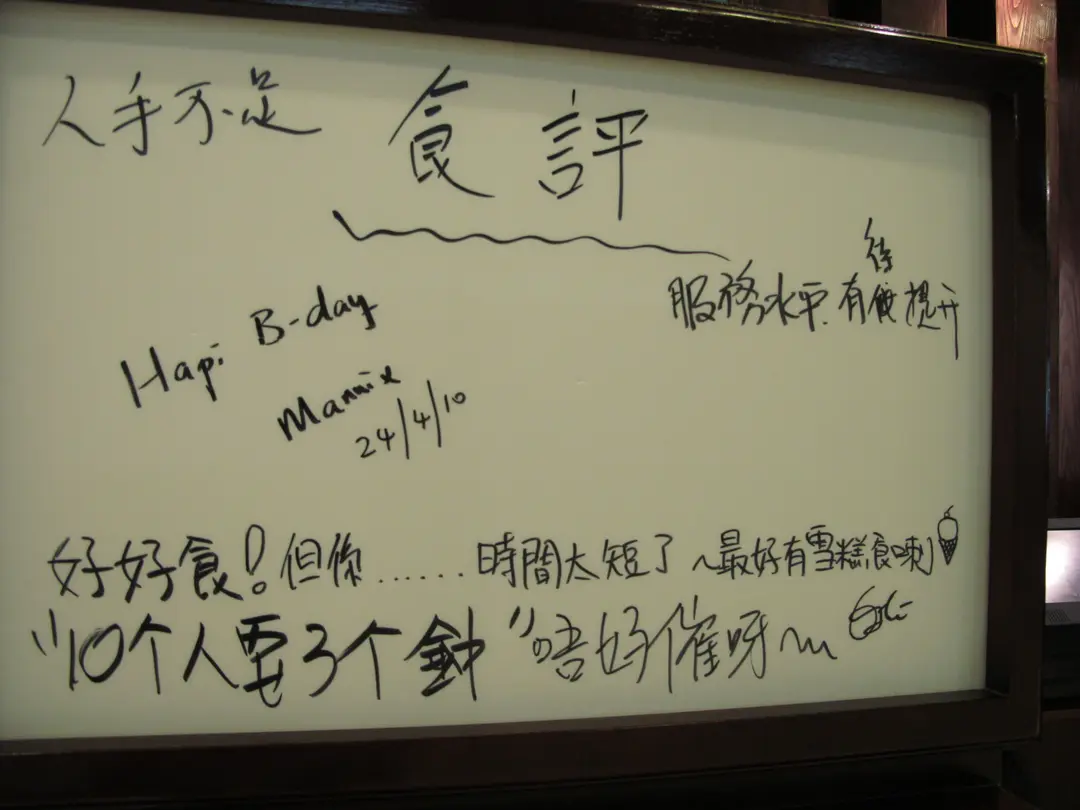 人手不足
食評
服務水平.有待提升
Hapi B-day
Mannix
24/4/10
好好食!但係......時間太短了~最好有雪糕食喇
"10个人要3个鐘"唔好催呀~